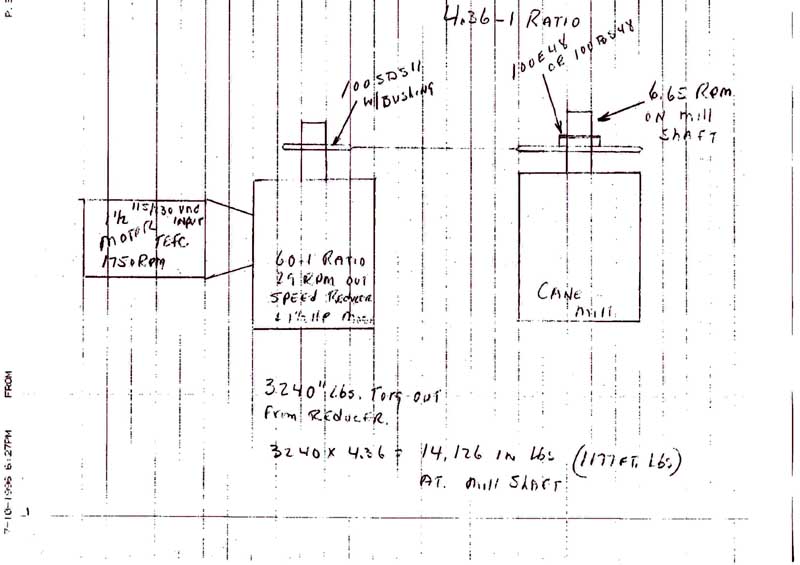 4.36-1 RATIO
100SDS11
W/BUSHING
100E48
OR 100BS48
6.65 RPM
ON mill
SHAFT
1½ 115/230 VAC
INPUT
MOTOR TEFC
1750 RPM
60-1 RATIO
29 RPM OUT
SPEED REDUCER
1½ HP
CANE
mill
3240" Lbs. TORQ OUT
From REDUCER.
3240 x 4.36 = 14,126 IN Lbs (1177 FT. Lbs)
AT. mill SHAFT
7-10-1996 6:27PM FROM
P.
1